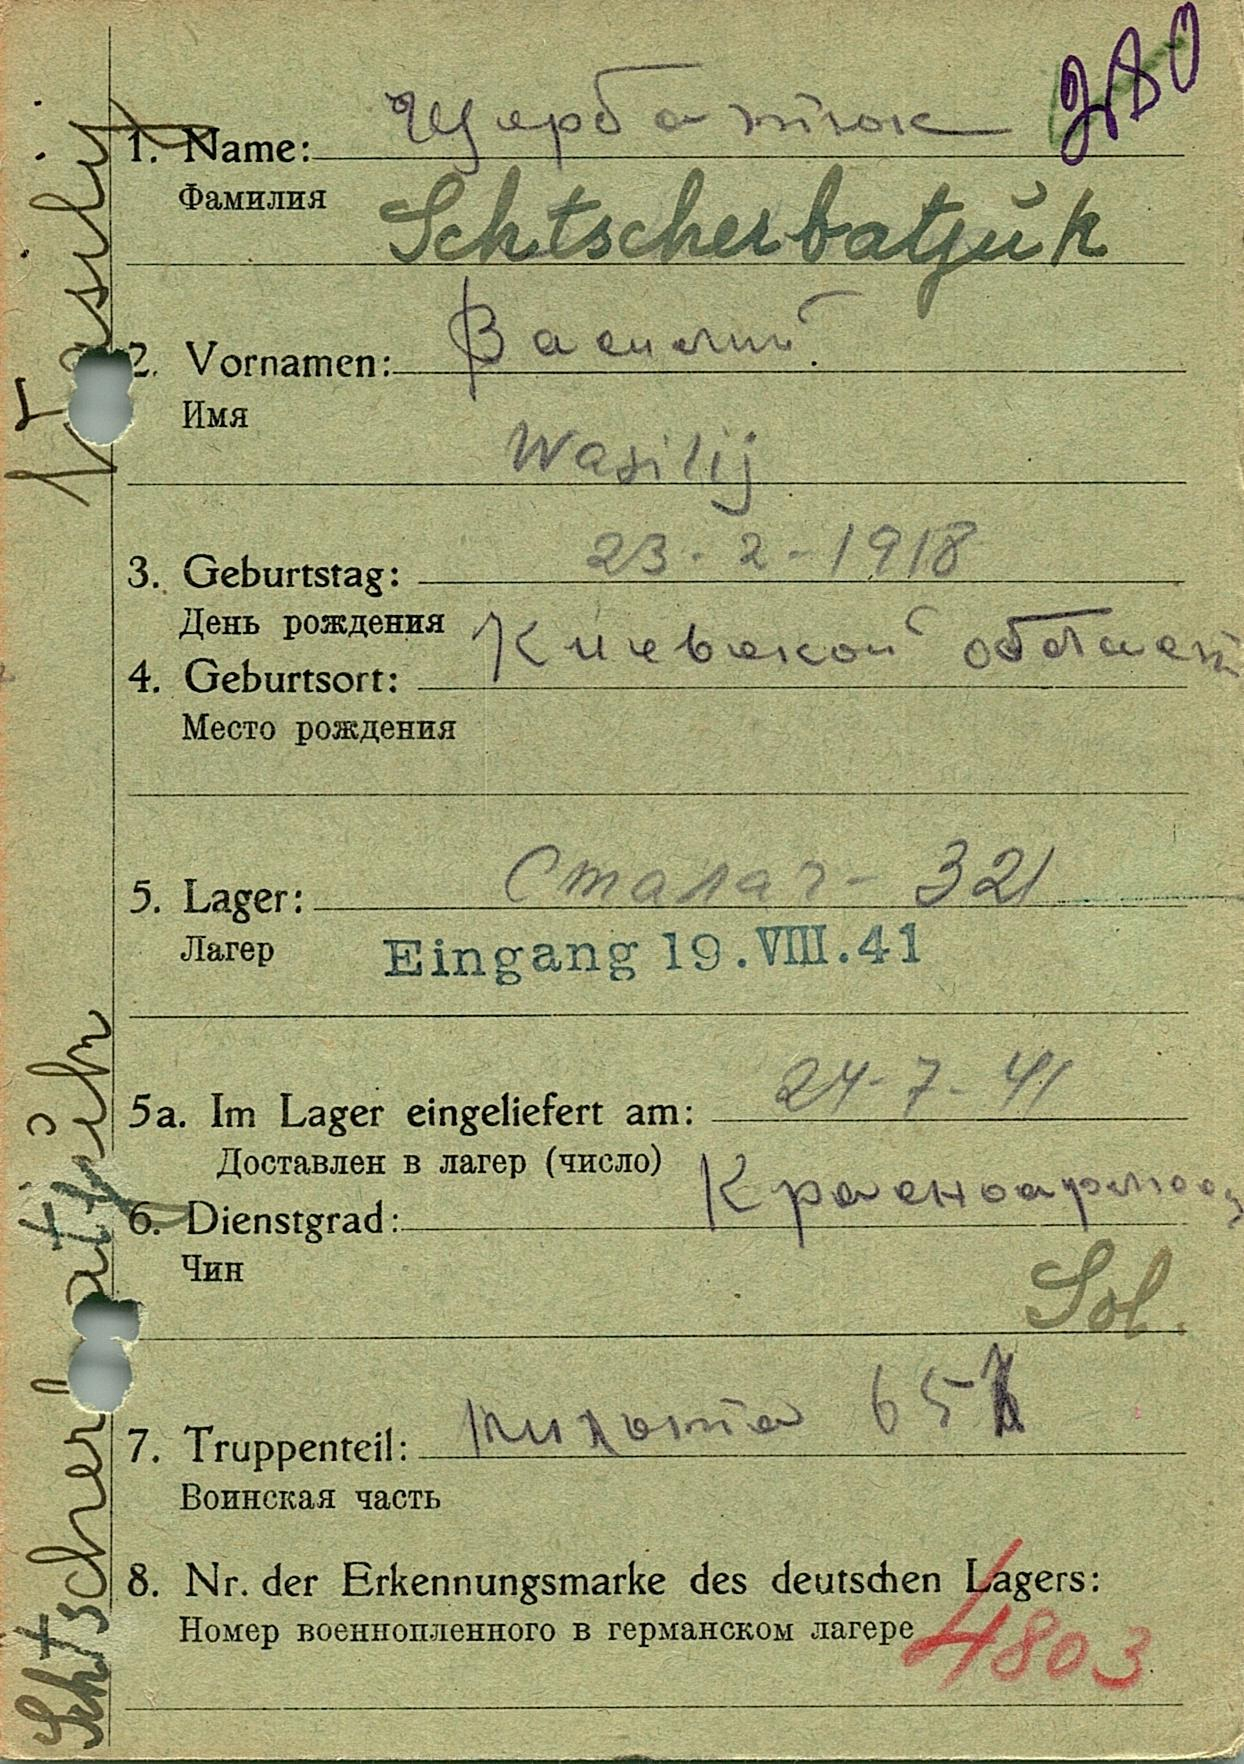 380
1. Name: Щербатюк
Фамилия
Schtscherbatjŭk
2. Vornamen: Василий
Имя
Wasilij
3. Geburtstag: 23-2-1918
День рождения
4. Geburtsort: Киевской област
Место рождения
5. Lager: Сталаг- 321
Лагер
Eingang 19.VIII.41
5a. Im Lager eingeliefert am: 24-7-41
Доставлен в лагер (число)
6. Dienstgrad: Красноармеец
Чин
Sol.
7. Truppenteil: пихота 65
Воинская часть
8. Nr. der Erkennungsmarke des deutschen Lagers:
Номер военнопленного в германском лагере 4803
Schtscherbatjŭk Wasilij